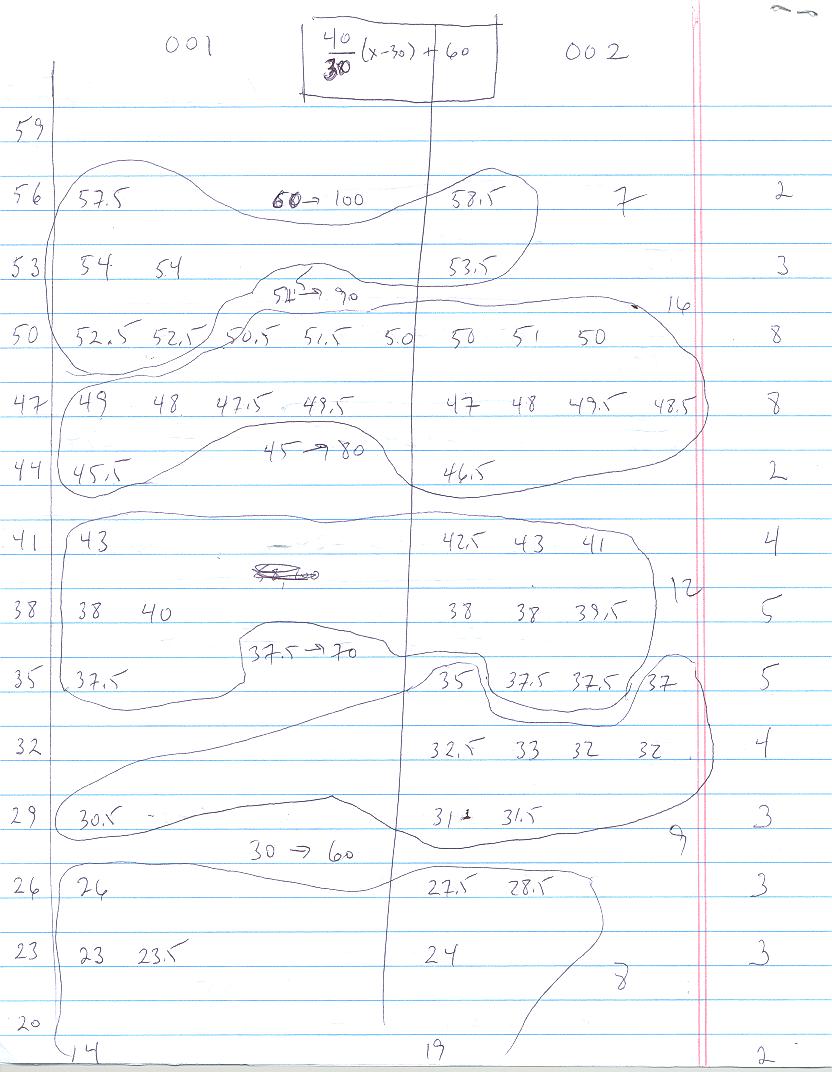 001 40/30 (x-30) + 60 002
59
56 57.5 60→100 58.5 7 2
53 54 54 53.5 3
→90
16
50 52.5 52.5 50.5 51.5 50 50 51 50 8
47 49 48 47.5 49.5 47 48 49.5 48.5 8
45→80
44 45.5 46.5 2
41 43 42.5 43 41 4
12
38 38 40 38 38 39.5 5
37.5→70
35 37.5 35 37.5 37.5 37 5
32 32.5 33 32 32 4
29 30.5 31 31.5 3
9
30→60
26 26 27.5 28.5 3
23 23 23.5 24 3
8
20
14 19 2